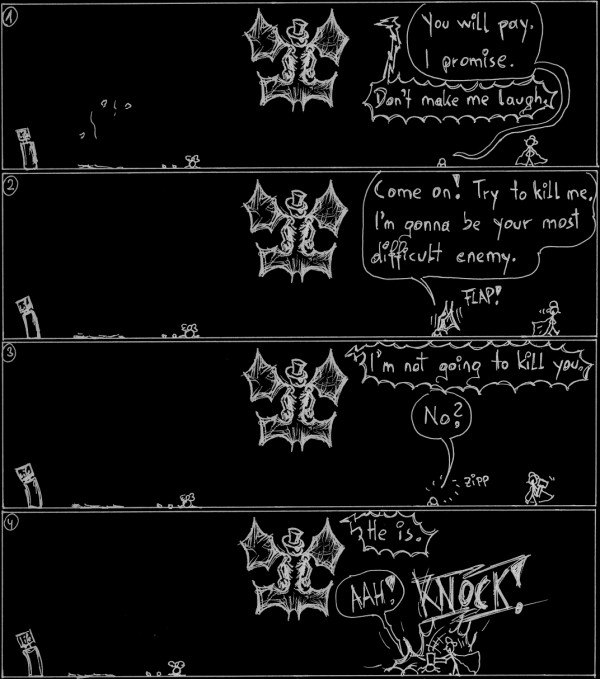 1
You will pay.
I promise.
Don't make me laugh.
2
Come on! Try to kill me.
I'm gonna be your most
difficult enemy.
FLAP!
3
I'm not going to kill you.
No?
ZIPP
4
He is.
AAH!
KNOCK!